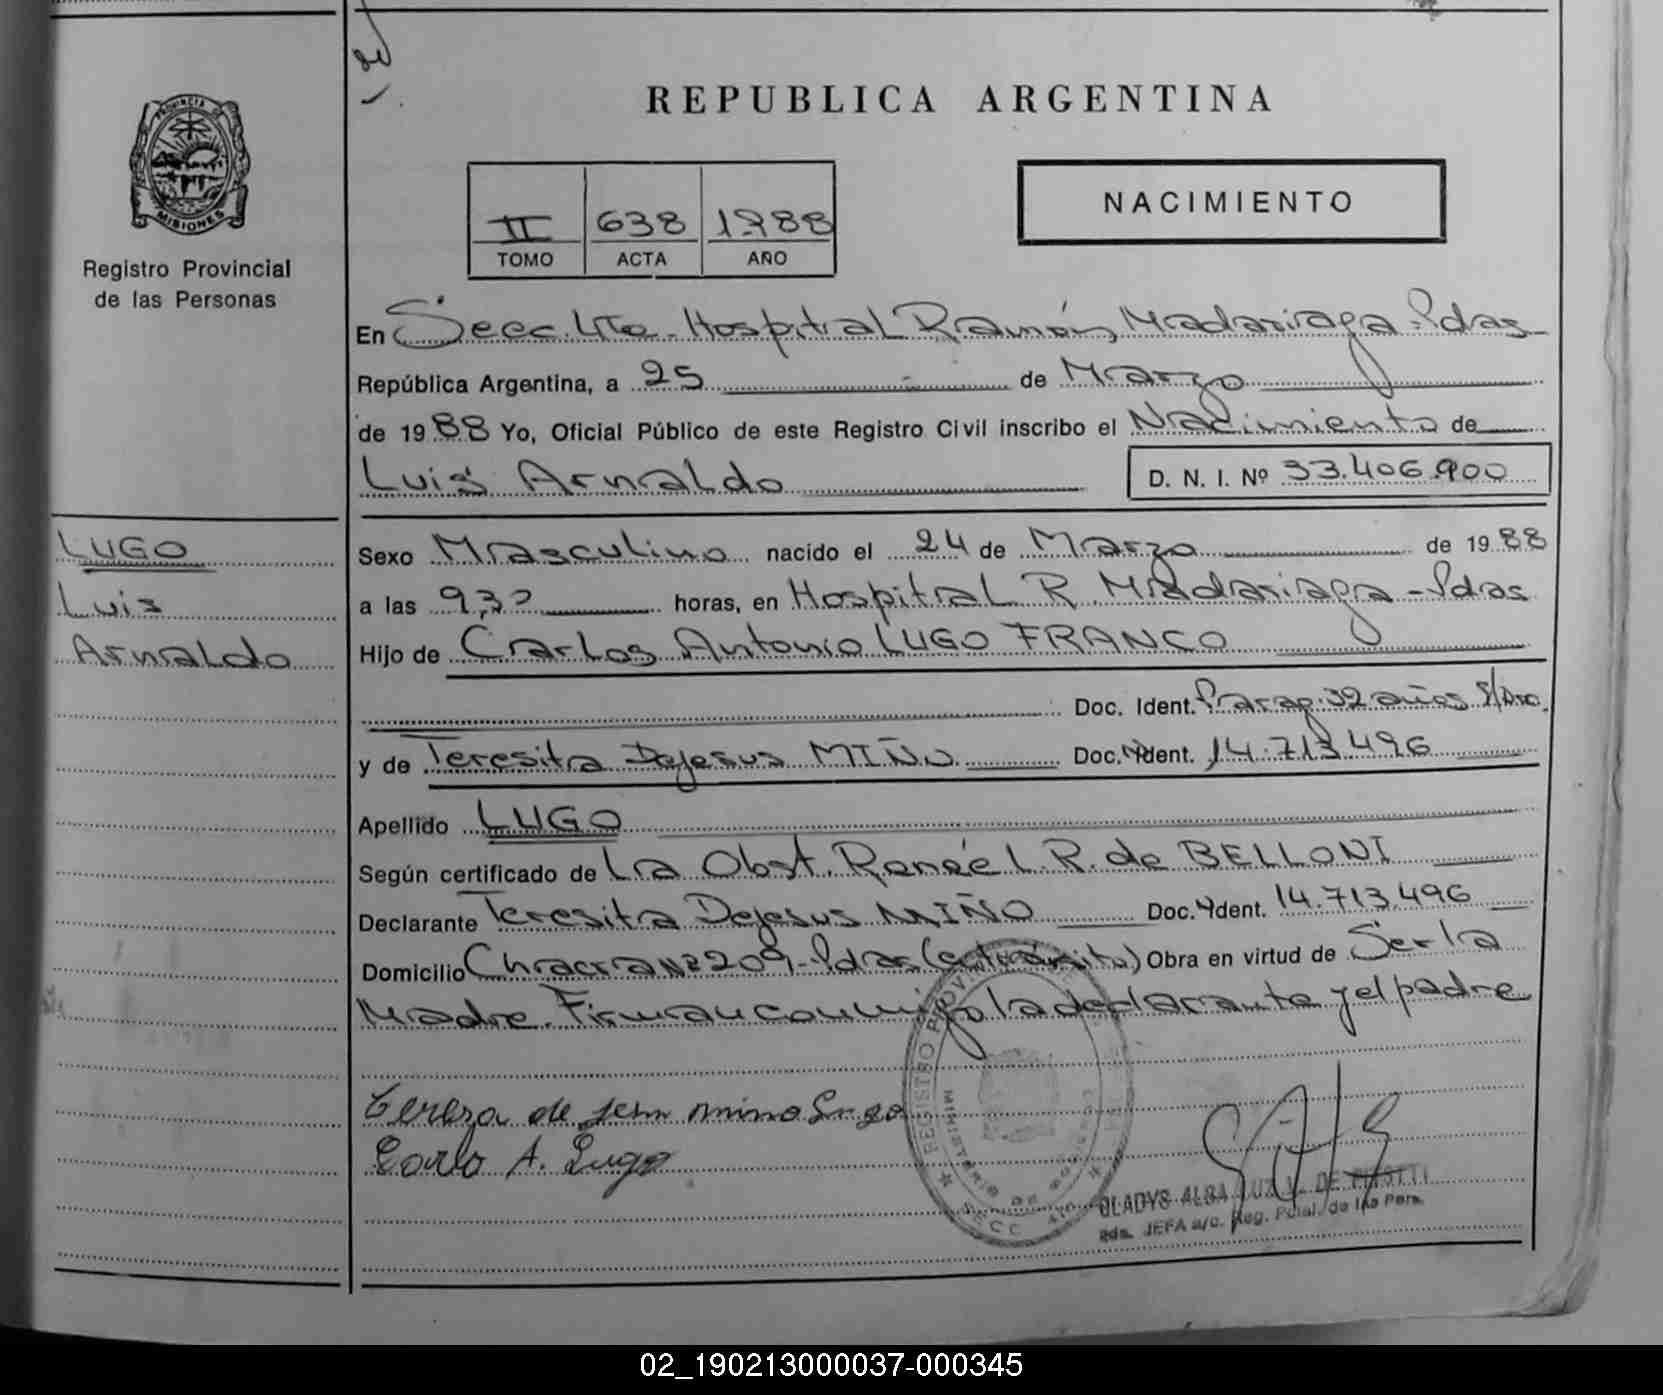 REPUBLICA ARGENTINA
PROVINCIA DE
MISIONES
Registro Provincial
de las Personas
II 638 1988
TOMO ACTA AÑO
NACIMIENTO
En Secc. 4ta. Hospital Ramón Madariaga - Pdas
República Argentina, a 25 de Marzo
de 1988 Yo, Oficial Público de este Registro Civil inscribo el Nacimiento de
Luis Arnaldo D. N. I. Nº 33.406.900
LUGO
Luis
Arnaldo
Sexo Masculino nacido el 24 de Marzo de 1988
a las 9,30 horas, en Hospital R. Madariaga - Pdas
Hijo de Carlos Antonio LUGO FRANCO
Doc. Ident. Parag. 32 años S/Doc.
y de Teresita Dejesus MIÑO Doc. Ident. 14.713.496
Apellido LUGO
Según certificado de La Obst. Reneé L. R. de BELLONI
Declarante Teresita Dejesus MIÑO Doc. Ident. 14.713.496
Domicilio Chacra Nº 209 - Pdas (en tránsito) Obra en virtud de Ser la
Madre. Firman conmigo la declarante y el padre
Tereza de jesu mino Lugo
Carlo A. Lugo
REGISTRO PROV
MINISTERIO DE
SECC 4ta
GLADYS ALBA LUZ V. DE
JEFA a/c. Reg. Pcial. de las Pers.
02_190213000037-000345